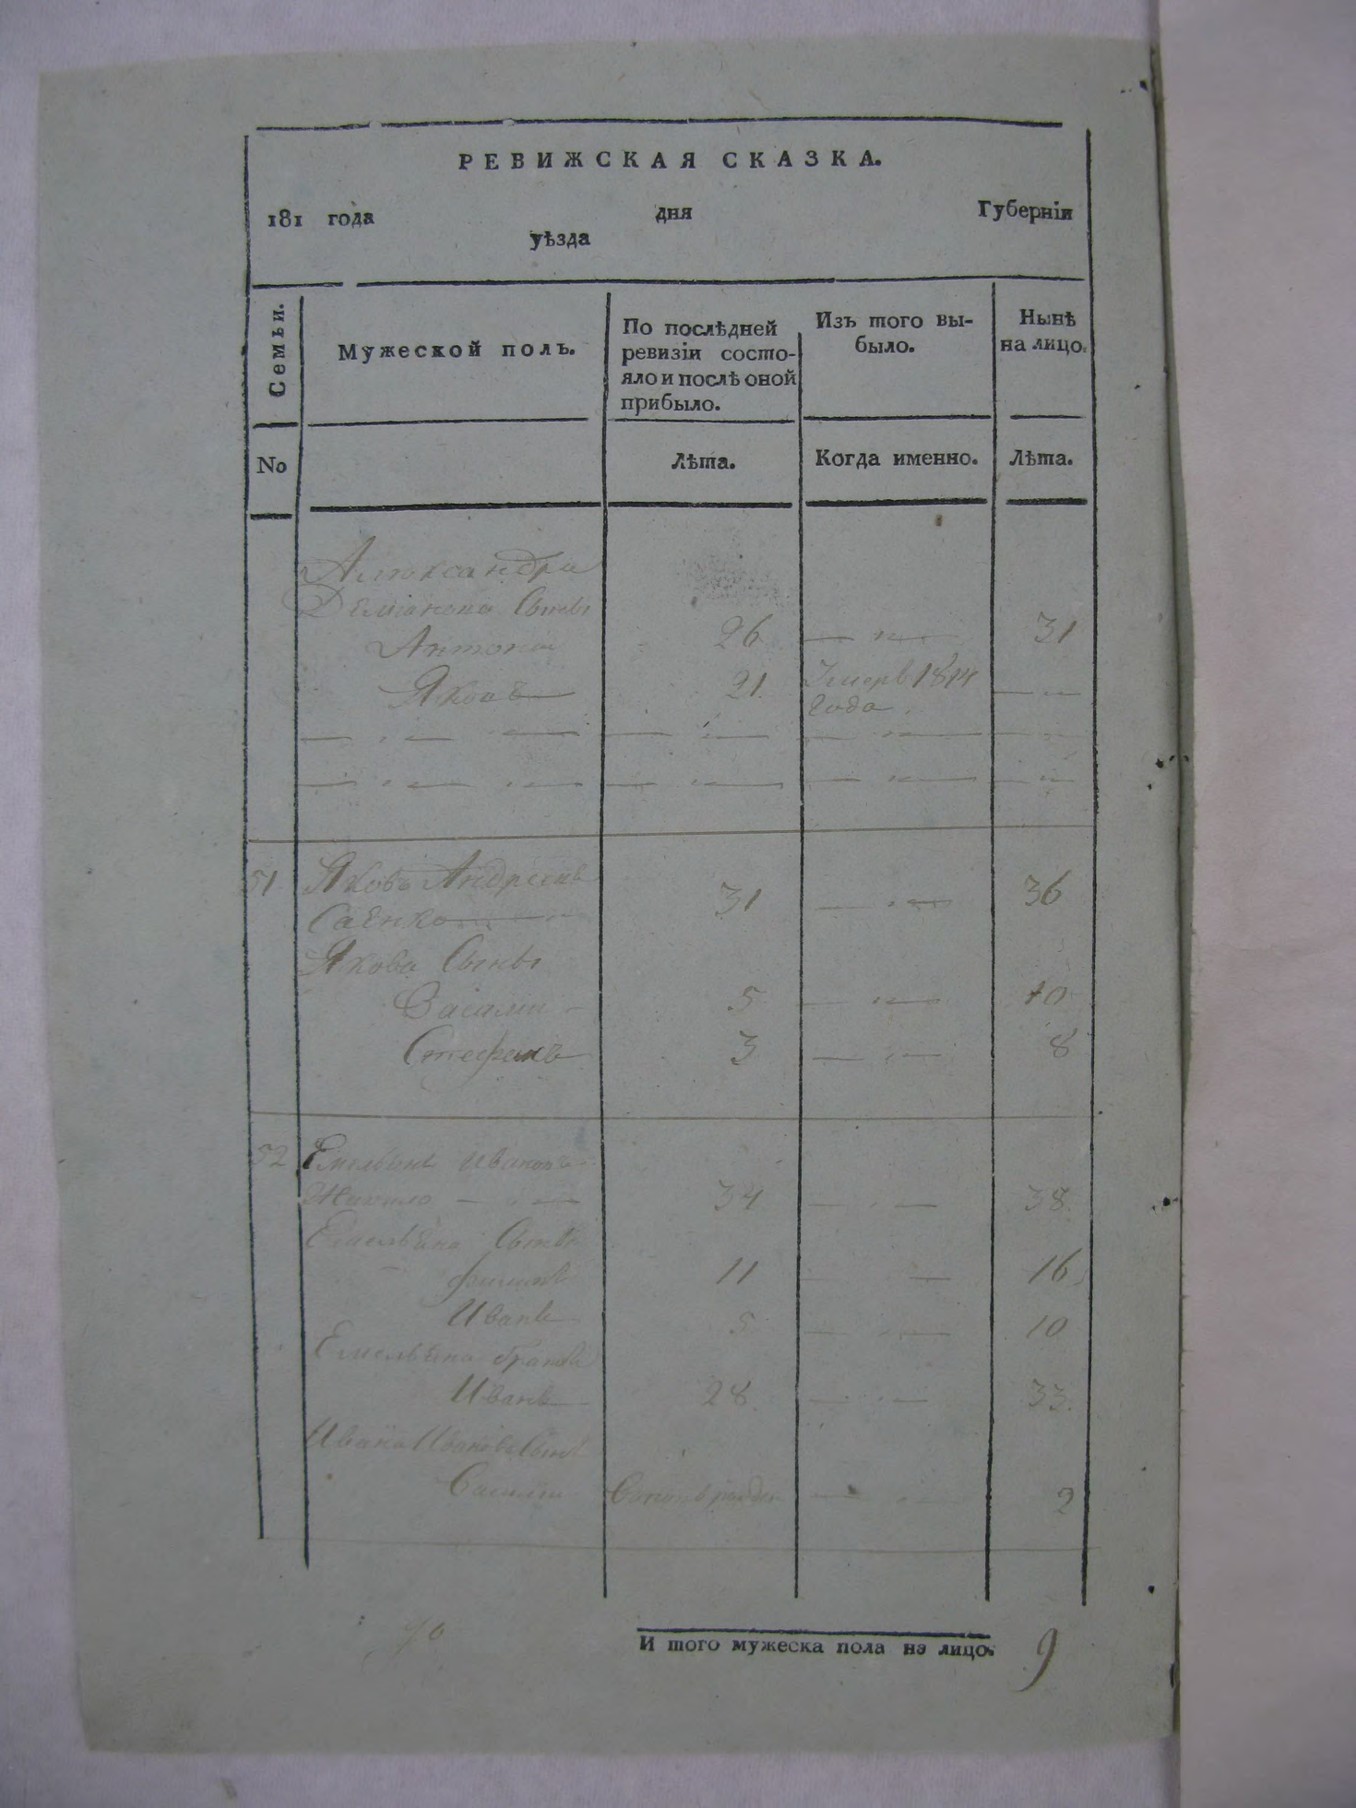 РЕВИЖСКАЯ СКАЗКА.
181 года дня Губерніи
уѣзда
Семьи.
Мужеской полъ.
По послѣдней
ревизіи состо-
яло и послѣ оной
прибыло.
Изъ того вы-
было.
Нынѣ
на лицо.
No
Лѣта.
Когда именно.
Лѣта.
Александра
Демiанова Сыны
Антоній 26 31
Яковъ 21 Умеръ 1814
года
51 Яковъ Андреевъ
Саенко 31 36
Якова Сыны
Василий 5 10
Стефанъ 3 8
52 Емельянъ Ивановъ
34 38
Емельяна Сыны
Филипъ 11 16
Иванъ 5 10
Емельяна братъ
Иванъ 28 33
Ивана Иванова Сынъ
Василий 2
И того мужеска пола на лицо. 9